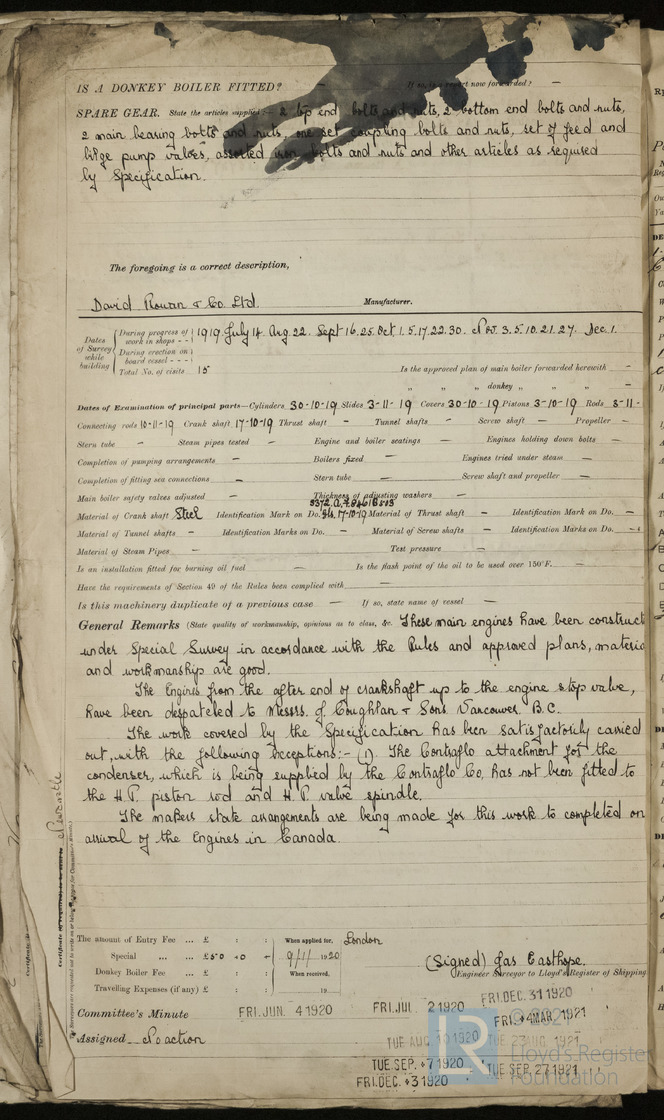 IS A DONKEY BOILER FITTED? — If so, is a report now forwarded? —
SPARE GEAR. State the articles supplied:— 2 top end bolts and nuts, 2 bottom end bolts and nuts,
2 main bearing bolts and nuts, one set coupling bolts and nuts, set of feed and
bilge pump valves, assorted iron bolts and nuts and other articles as required
by Specification.
The foregoing is a correct description,
David Rowan & Co. Ltd. Manufacturer.
Dates of Survey while building
During progress of work in shops - - 1919 July 14. Aug. 22. Sept 16. 25. Oct 1. 5. 17. 22. 30. Nov. 3. 5. 10. 21. 27. Dec. 1.
During erection on board vessel - - -
Total No. of visits 15 Is the approved plan of main boiler forwarded herewith —
" " " donkey " " " —
Dates of Examination of principal parts—Cylinders 30-10-19 Slides 3-11-19 Covers 30-10-19 Pistons 3-10-19 Rods 3-11-
Connecting rods 10-11-19 Crank shaft 17-10-19 Thrust shaft — Tunnel shafts — Screw shaft — Propeller —
Stern tube — Steam pipes tested — Engine and boiler seatings — Engines holding down bolts —
Completion of pumping arrangements — Boilers fixed — Engines tried under steam —
Completion of fitting sea connections — Stern tube — Screw shaft and propeller —
Main boiler safety valves adjusted — Thickness of adjusting washers —
Material of Crank shaft Steel Identification Mark on Do. 17-10-19 Material of Thrust shaft — Identification Mark on Do. —
Material of Tunnel shafts — Identification Marks on Do. — Material of Screw shafts — Identification Marks on Do. —
Material of Steam Pipes — Test pressure —
Is an installation fitted for burning oil fuel — Is the flash point of the oil to be used over 150°F. —
Have the requirements of Section 49 of the Rules been complied with —
Is this machinery duplicate of a previous case — If so, state name of vessel —
General Remarks (State quality of workmanship, opinions as to class, &c. These main engines have been construct
under Special Survey in accordance with the Rules and approved plans, materia
and workmanship are good.
The Engines from the after end of crankshaft up to the engine stop valve,
have been despatched to Messrs. J. Coughlan & Sons Vancouver B.C.
The work covered by the Specification has been satisfactorily carried
out, with the following exceptions:- (1). The Contraflo attachment for the
condenser, which is being supplied by the Contraflo Co, has not been fitted to
the H.P. piston rod and H.P. valve spindle.
The makers state arrangements are being made for this work to completed on
arrival of the Engines in Canada.
Newcastle
The amount of Entry Fee ... £ : : When applied for, London
Special ... ... £50 : 0 : 9/1/1920
Donkey Boiler Fee ... £ : : When received,
Travelling Expenses (if any) £ : : 19
(Signed) Jas Easthope.
Engineer Surveyor to Lloyd's Register of Shipping
Committee's Minute FRI. JUN. 4 1920 FRI. JUL 2 1920 FRI. DEC. 31 1920
FRI. 4 MAR. 1921
Assigned No action TUE. AUG. 10 1920 TUE. 23 AUG. 1921
TUE. SEP. 7 1920 TUE. SEP. 27 1921
FRI. DEC. 3 1920
© 2021
LR Lloyd's Register
Foundation